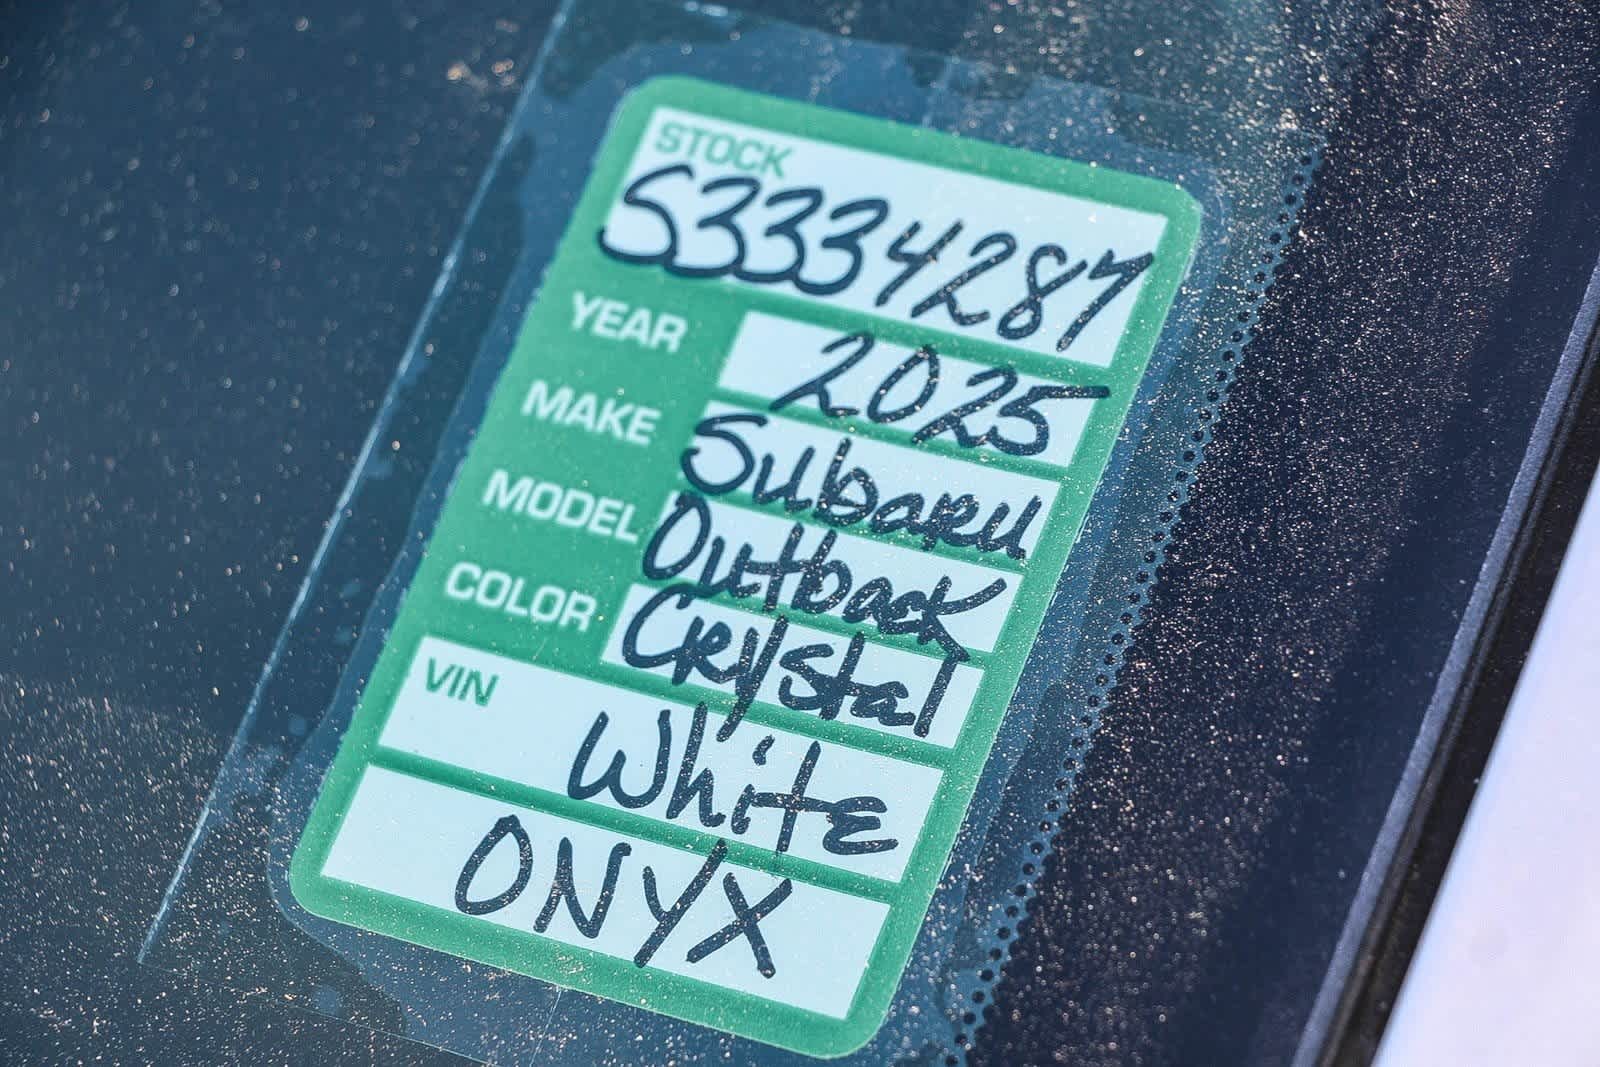 STOCK
S3334287
YEAR 2025
MAKE Subaru
MODEL Outback
COLOR Crystal
VIN White
ONYX